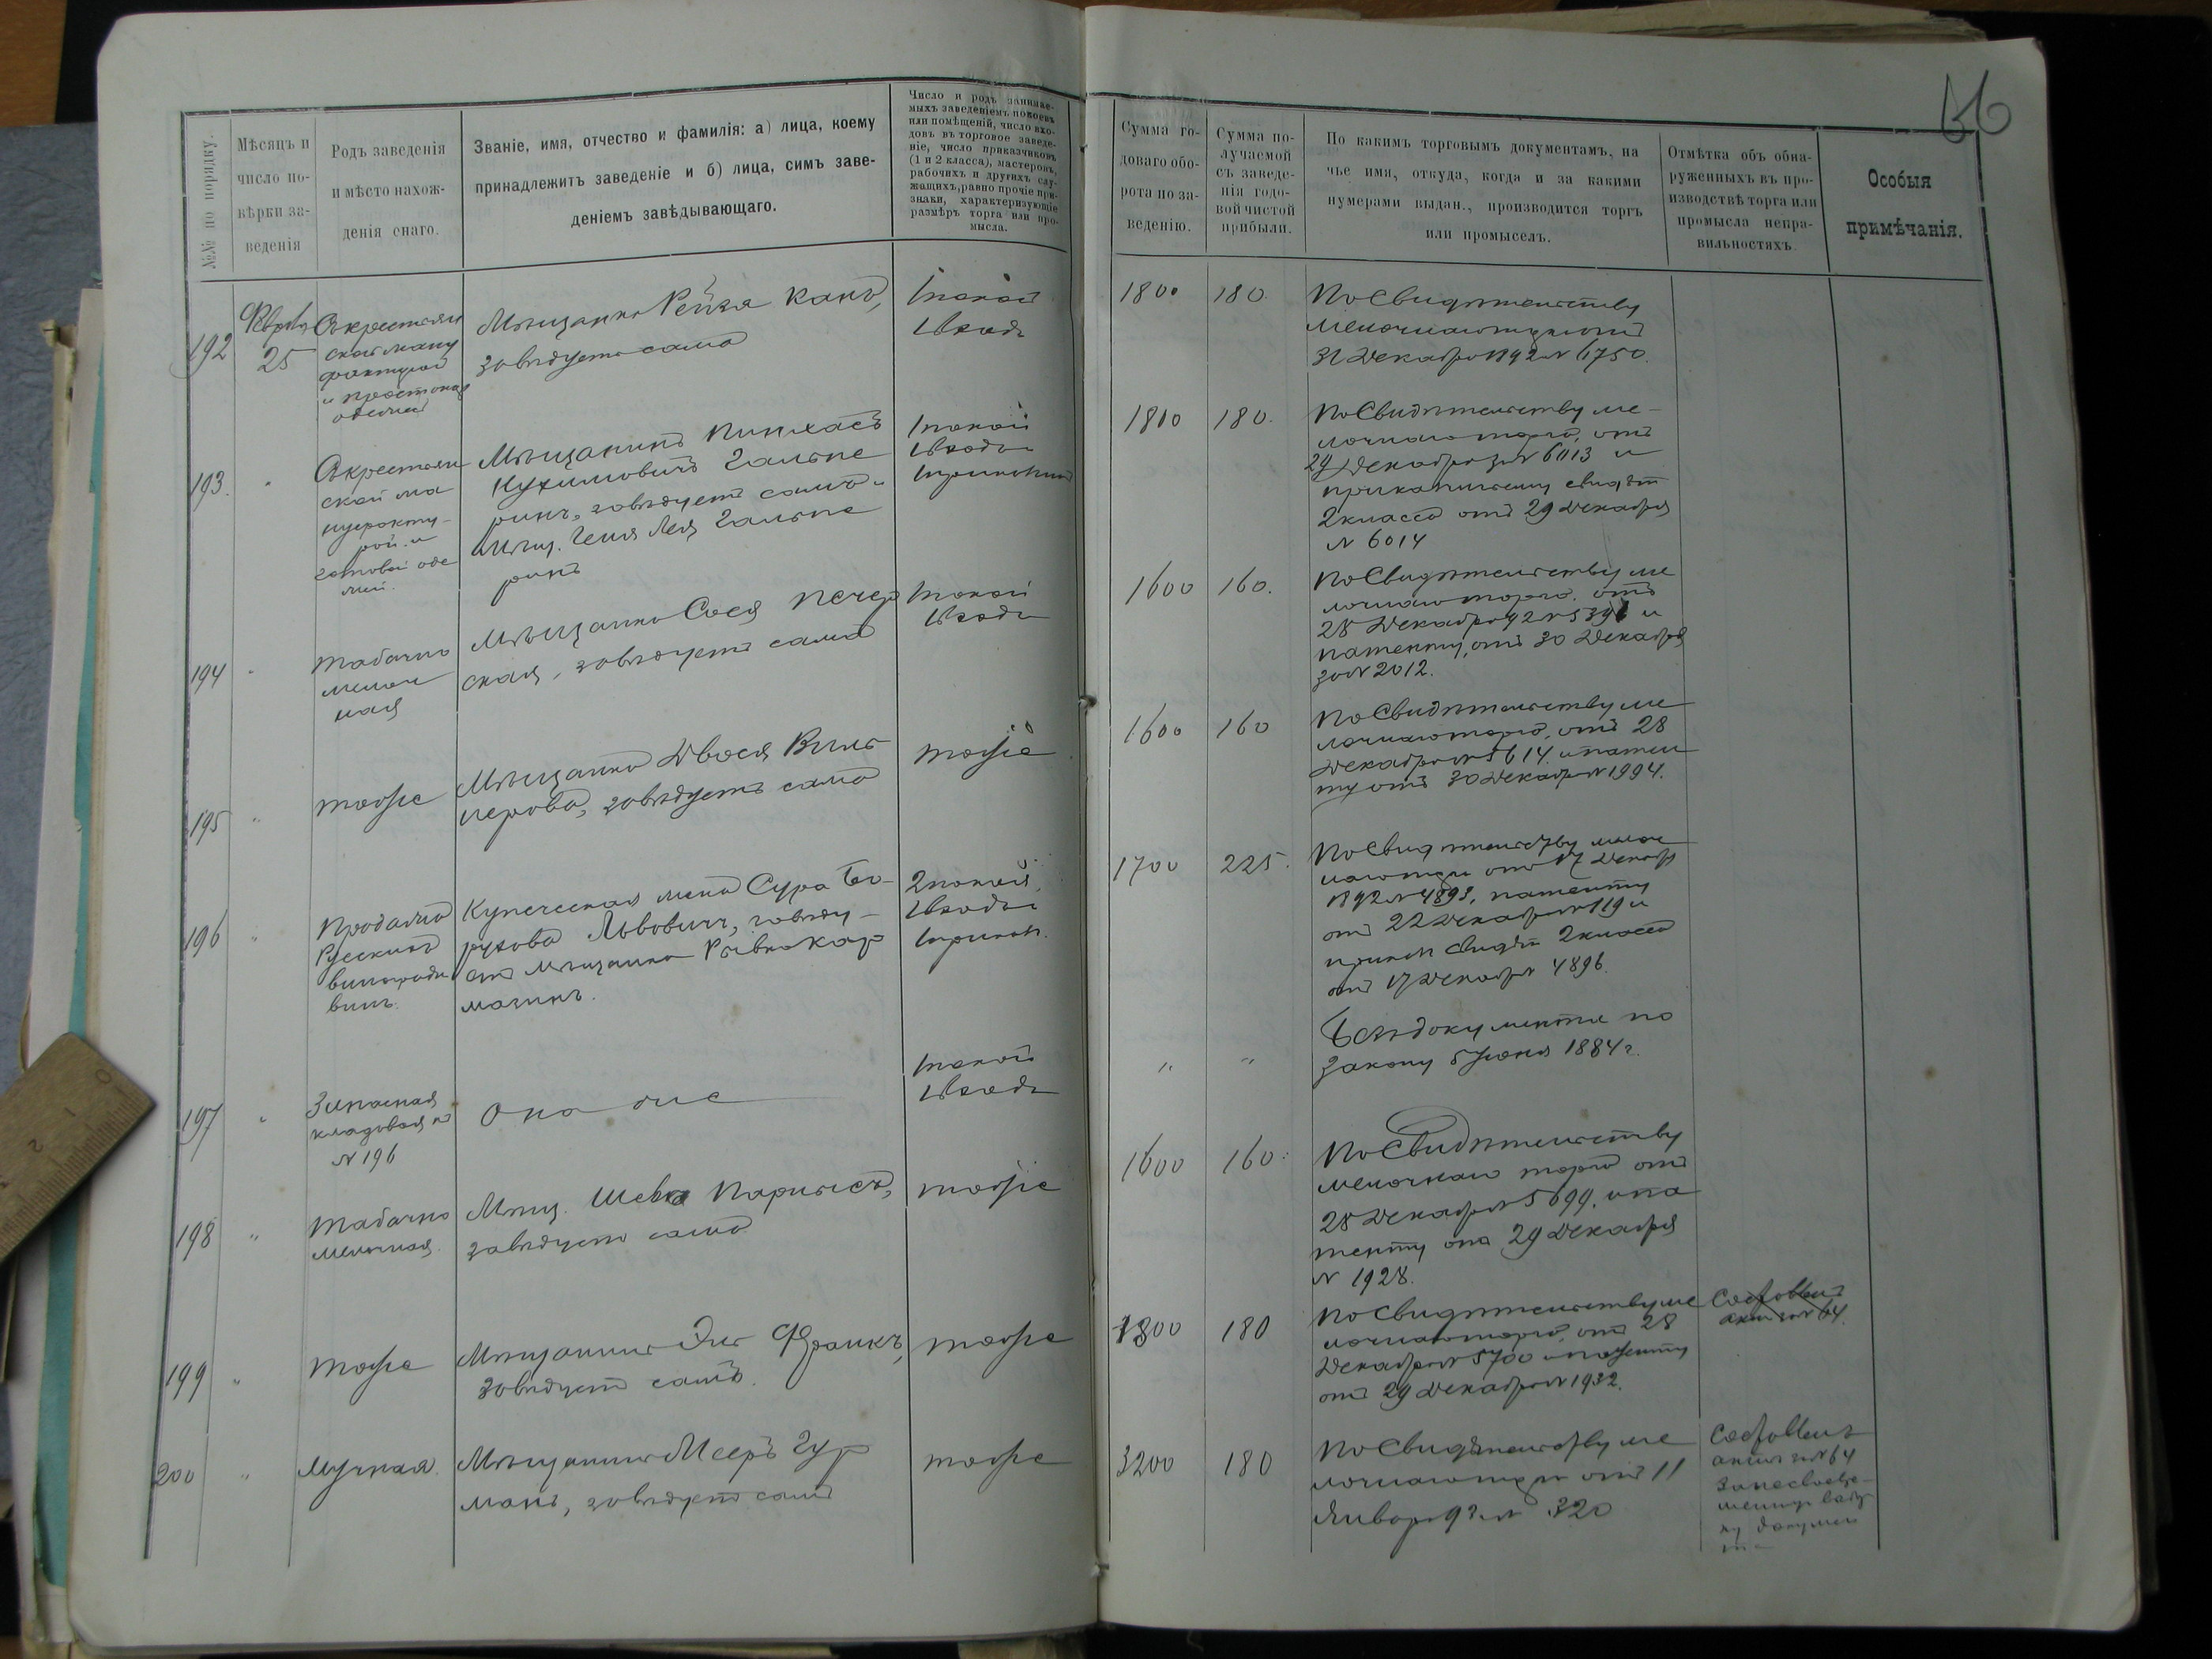 56
№№ по порядку.
Мѣсяцъ и
число по-
вѣрки за-
веденія
Родъ заведенія
и мѣсто нахож-
денія онаго.
Званіе, имя, отчество и фамилія: а) лица, коему
принадлежитъ заведеніе и б) лица, симъ заве-
деніемъ завѣдывающаго.
Число и родъ занимае-
мыхъ заведеніемъ покоевъ
или помѣщеній, число вхо-
довъ въ торговое заведе-
ніе, число приказчиковъ
(1 и 2 класса), мастеровъ,
рабочихъ и другихъ слу-
жащихъ, равно прочіе при-
знаки, характеризующіе
размѣръ торга или про-
мысла.
Сумма го-
доваго обо-
рота по за-
веденію.
Сумма по-
лучаемой
съ заведе-
нія годо-
вой чистой
прибыли.
По какимъ торговымъ документамъ, на
чье имя, откуда, когда и за какими
нумерами выдан., производится торгъ
или промыселъ.
Отмѣтка объ обна-
руженныхъ въ про-
изводствѣ торга или
промысла непра-
вильностяхъ.
Особыя
примѣчанія.
192
25
Съ крестьян
ской ману
фактурой
и простонар
одежей
Мѣщанка Рейза Канъ,
завѣдуетъ сама
1 покой
1 входъ
1800
180.
По Свидѣтельству
мелочнаго торга отъ
31 Декабря 1892 N 6750.
193.
Съ крестьян
ской ма
нуфакту-
рой и
готовой оде
жей.
Мѣщанинъ Пинхасъ
Нухимовичъ Гальпе
ринъ, завѣдуетъ самъ и
мѣщ. Геня Лея Гальпе
ринъ
1 покой
1 входъ
1 приказчикъ
1800
180.
По Свидѣтельству ме-
лочнаго торга, отъ
29 Декабря N 6013 и
приказчичьему свидѣт
2 класса отъ 29 Декабря
N 6014
194
Табачно
мелоч
ная
Мѣщанка Сося Печер
ская, завѣдуетъ сама
1 покой
1 входъ
1600
160.
По Свидѣтельству ме
лочнаго торга, отъ
28 Декабря 92 N 5391 и
патенту, отъ 30 Декабря
за N 2012.
195
тоже
Мѣщанка Двося Виль
нерова, завѣдуетъ сама
тоже
1600
160
По Свидѣтельству ме
лочнаго торга, отъ 28
Декабря N 5614. и патен
ту отъ 30 Декабря N 1994.
196
Продажа
Русскихъ
виноградн
винъ.
Купеческая жена Сура Бо-
рухова Львовичъ, завѣду-
етъ мѣщанка Рывка Кар
мазинъ.
2 покоя,
1 входъ
1 приказч.
1700
225.
По Свидѣтельству мелоч
наго торга отъ 17 Декабр
1892 N 4893, патенту
отъ 22 Декабря N 119 и
приказч свидѣт 2 класса
отъ 17 Декабря 4896.
197
Запасная
кладовая къ
N 196
Она же
1 покой
1 входъ
"
"
Безъ документа по
закону 5 Іюня 1884 г.
198
"
Табачно
мелочная.
Мѣщ. Шевка Парижсъ,
завѣдуетъ сама
тоже
1600
160.
По Свидѣтельству
мелочнаго торга отъ
28 Декабря N 5699. и па
тенту отъ 29 Декабря
N 1928.
199
"
тоже
Мѣщанинъ Эля Франкъ,
завѣдуетъ самъ.
тоже
1800
180
По Свидѣтельству ме
лочнаго торга, отъ 28
Декабря N 5700 и патенту
отъ 29 Декабря N 1932.
Составленъ
актъ за N 64.
200
"
Мучная.
Мѣщанинъ Мееръ Гур
манъ, завѣдуетъ самъ
тоже
3200
180
По Свидѣтельству ме
лочнаго торга отъ 11
Января 93 N 320
Составленъ
актъ за N 64
за несвоевре-
менную выбор
ку докумен
та